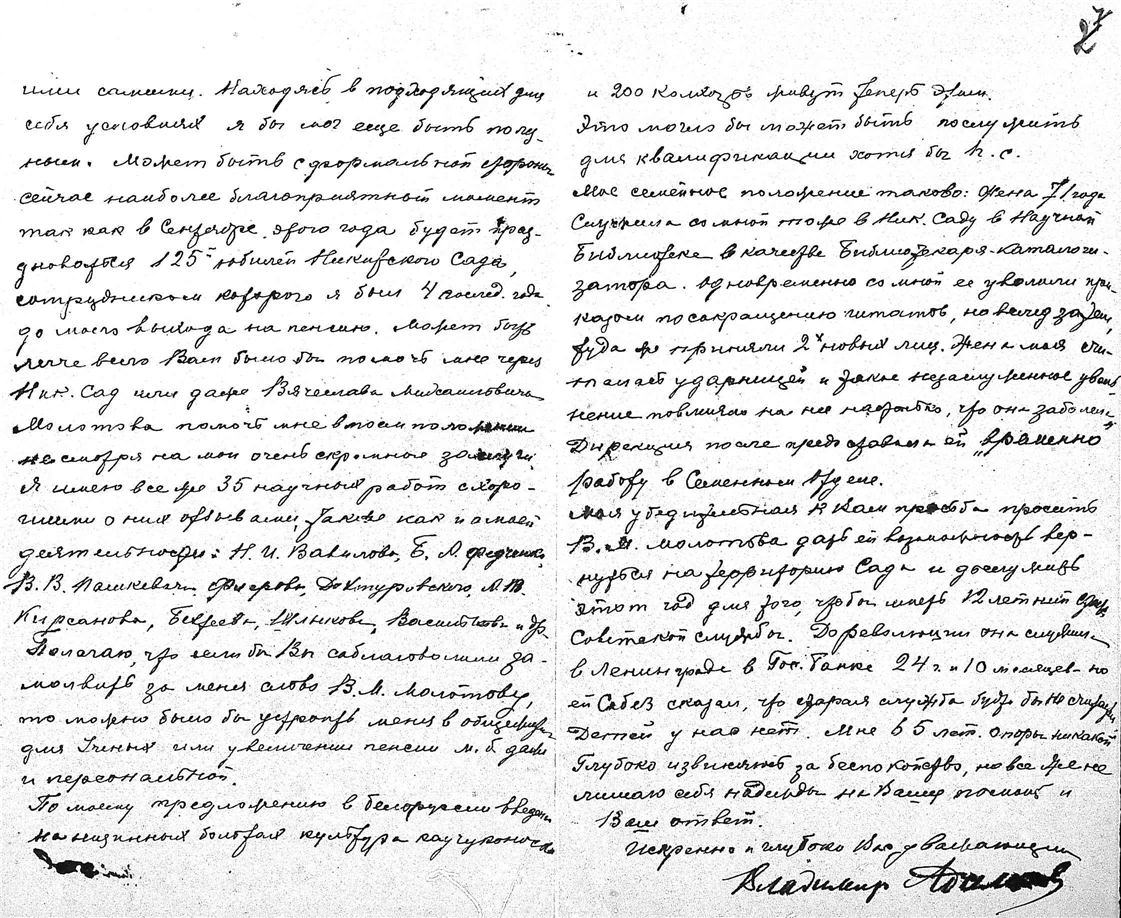 или самыми. Находясь в подходящих для
себя условиях я бы мог еще быть полез-
ным. Может быть с формальной стороны
сейчас наиболее благоприятный момент
так как в Сентябре этого года будет праз-
дноваться 125-юбилей Никитского Сада,
сотрудником которого я был 4 послед. года
до моего выхода на пенсию. Может быть
легче всего Вам было бы помочь мне через
Ник. Сад или даже Вячеслава Михайловича
Молотова помочь мне в моем положении
несмотря на мои очень скромные заслуги.
Я имею все же 35 научных работ с хоро-
шими о них отзывами, также как и о моей
деятельности: Н. И. Вавилова, Б. А. Федченко,
В. В. Пашкевича, Фигурова, Доктуровского, А. В.
Кирсанова, Бекетова, Шлыкова, Васильева и др.
Полагаю, что если бы Вы соблаговолили за-
молвить за меня слово В. М. Молотову,
то можно было бы устроить меня в общежитие
для Ученых или увеличении пенсии м. б. даже
и персональной.
По моему предложению в Белоруссии введена
на низинных болотах культура каучуконоса
27
и 200 колхозов живут теперь этим.
Это могло бы может быть послужить
для квалификации хотя бы п. с.
Мое семейное положение таково: Жена 71 года
Служила со мной тоже в Ник. Саду в Научной
Библиотеке в качестве Библиотекаря-каталоги-
затора. Одновременно со мной ее уволили при-
казом по сокращению штатов, но вслед затем,
туда же приняли 2х новых лиц. Жена моя счи-
талась ударницей и такое незаслуженное уволь-
нение повлияло на нее настолько, что она заболела
Дирекция после предоставила ей "временно"
работу в Семенном Отделе.
Моя убедительная к Вам просьба просить
В. М. Молотова дать ей возможность вер-
нуться на территорию Сада и дослужить
этот год для того, чтобы иметь 12 летний стаж
Советской службы. До революции она служила
в Ленинграде в Гос. Банке 24 г. и 10 месяцев но
ей Собез сказал, что старая служба будто бы не считается
Детей у нас нет. Мне 65 лет. Опоры никакой
Глубоко извиняюсь за беспокойство, но все же не
лишаю себя надежды на Вашу помощь и
Ваш ответ.
Искренно и глубоко Вас уважающий
Владимир